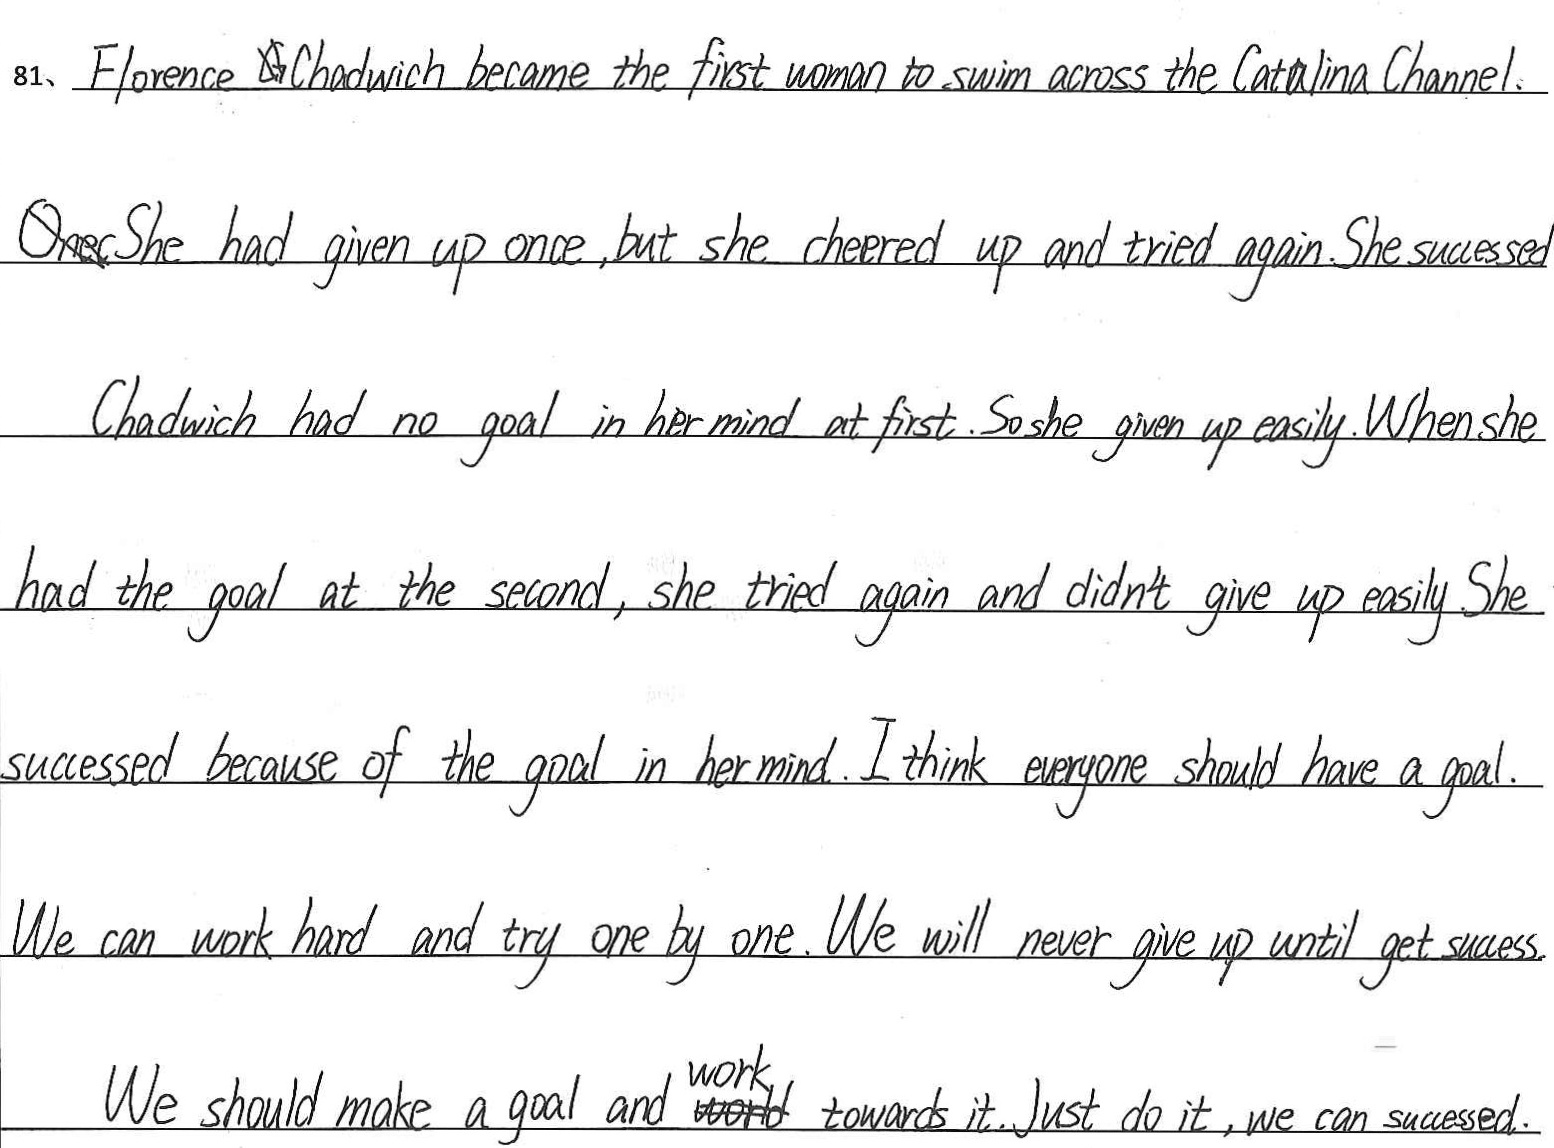 81、 Florence Chadwich became the first woman to swim across the Catalina Channel.
She had given up once, but she cheered up and tried again. She successed
Chadwich had no goal in her mind at first. So she given up easily. When she
had the goal at the second, she tried again and didn't give up easily. She
successed because of the goal in her mind. I think everyone should have a goal.
We can work hard and try one by one. We will never give up until get success.
We should make a goal and work towards it. Just do it, we can successed.